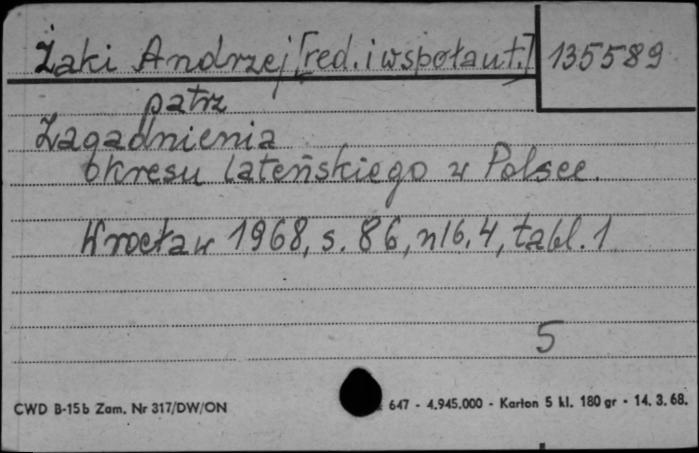 Żaki Andrzej [red. i współaut.] 135589
patrz
Zagadnienia
okresu lateńskiego w Polsce.
Wrocław 1968, s. 86, nlb. 4, tabl. 1
5
CWD B-15b Zam. Nr 317/DW/ON 647 - 4.945.000 - Karton 5 kl. 180 gr - 14. 3. 68.